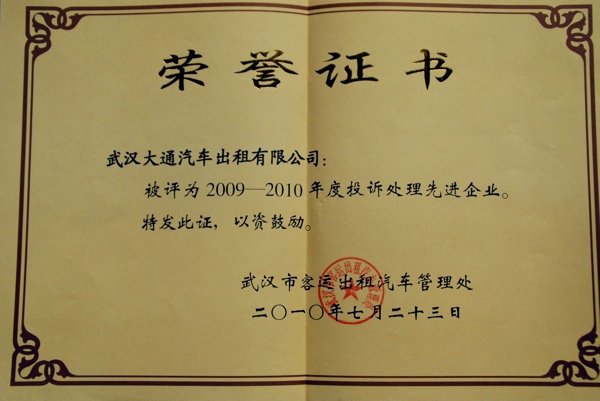 荣誉证书
武汉大通汽车出租有限公司：
被评为2009—2010年度投诉处理先进企业。
特发此证，以资鼓励。
武汉市客运出租汽车管理处
二〇一〇年七月二十三日